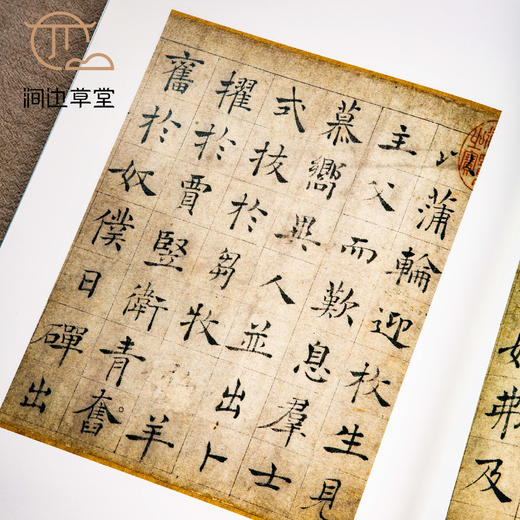 涧边草堂
以蒲輪迎枚生見
主父而歎息羣士
慕嚮異人並出卜
式拔於芻牧羊
擢於賈豎衛青奮
奮於奴僕日磾出
弗及